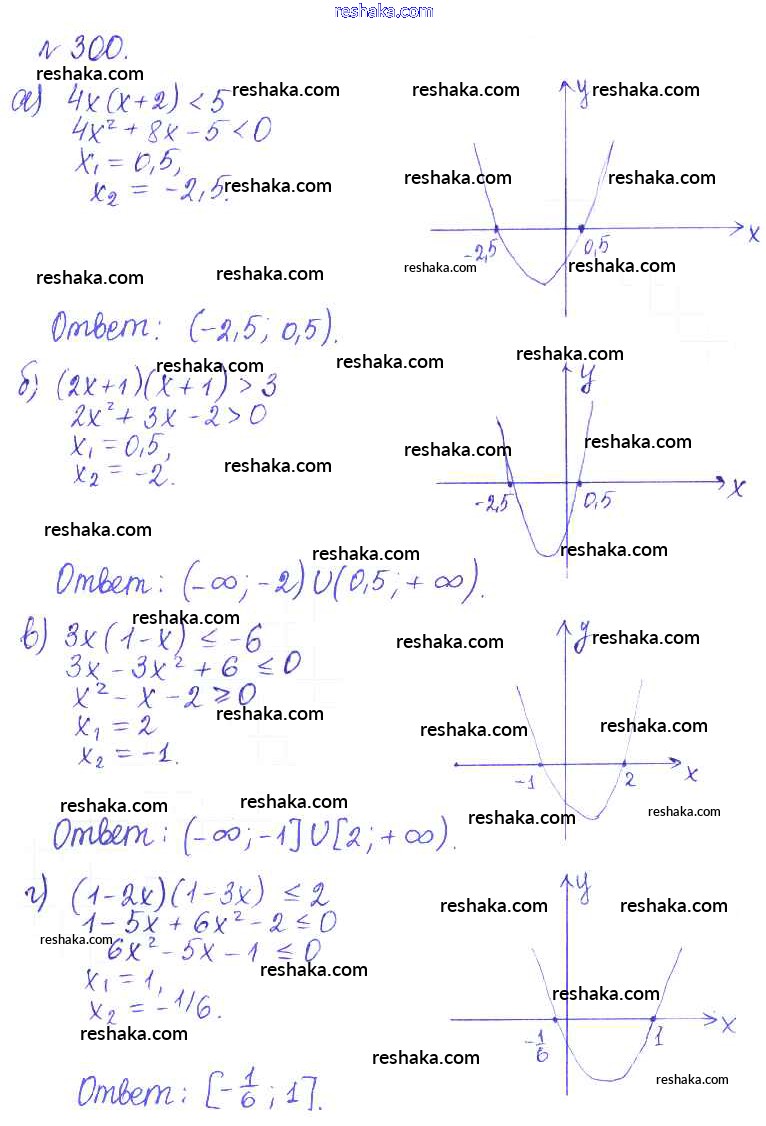 reshaka.com
№ 300.
reshaka.com
а) 4x(x+2) < 5 reshaka.com reshaka.com reshaka.com y
4x² + 8x - 5 < 0
x₁ = 0,5,
x₂ = -2,5. reshaka.com reshaka.com reshaka.com
-2,5 0,5 x
reshaka.com reshaka.com reshaka.com reshaka.com
Ответ: (-2,5; 0,5).
reshaka.com reshaka.com reshaka.com
б) (2x+1)(x+1) > 3 y
2x² + 3x - 2 > 0
x₁ = 0,5, reshaka.com reshaka.com
x₂ = -2. reshaka.com
-2,5 0,5 x
reshaka.com reshaka.com reshaka.com
Ответ: (-∞; -2) ∪ (0,5; +∞).
reshaka.com
в) 3x(1-x) ≤ -6 reshaka.com y reshaka.com
3x - 3x² + 6 ≤ 0
x² - x - 2 ≥ 0
reshaka.com
x₁ = 2 reshaka.com reshaka.com
x₂ = -1.
-1 2 x
reshaka.com reshaka.com reshaka.com reshaka.com
Ответ: (-∞; -1] ∪ [2; +∞).
г) (1-2x)(1-3x) ≤ 2 y
reshaka.com reshaka.com
1 - 5x + 6x² - 2 ≤ 0
reshaka.com
6x² - 5x - 1 ≤ 0
reshaka.com
x₁ = 1,
x₂ = -1/6. reshaka.com
reshaka.com
-1/6 1 x
reshaka.com reshaka.com
Ответ: [-1/6; 1].